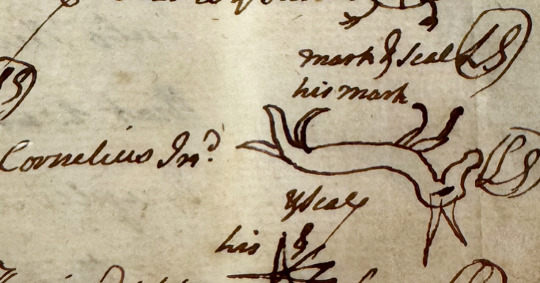 mark & Seal LS
his mark
LS
Cornelius Ind. LS
& Seal
his &